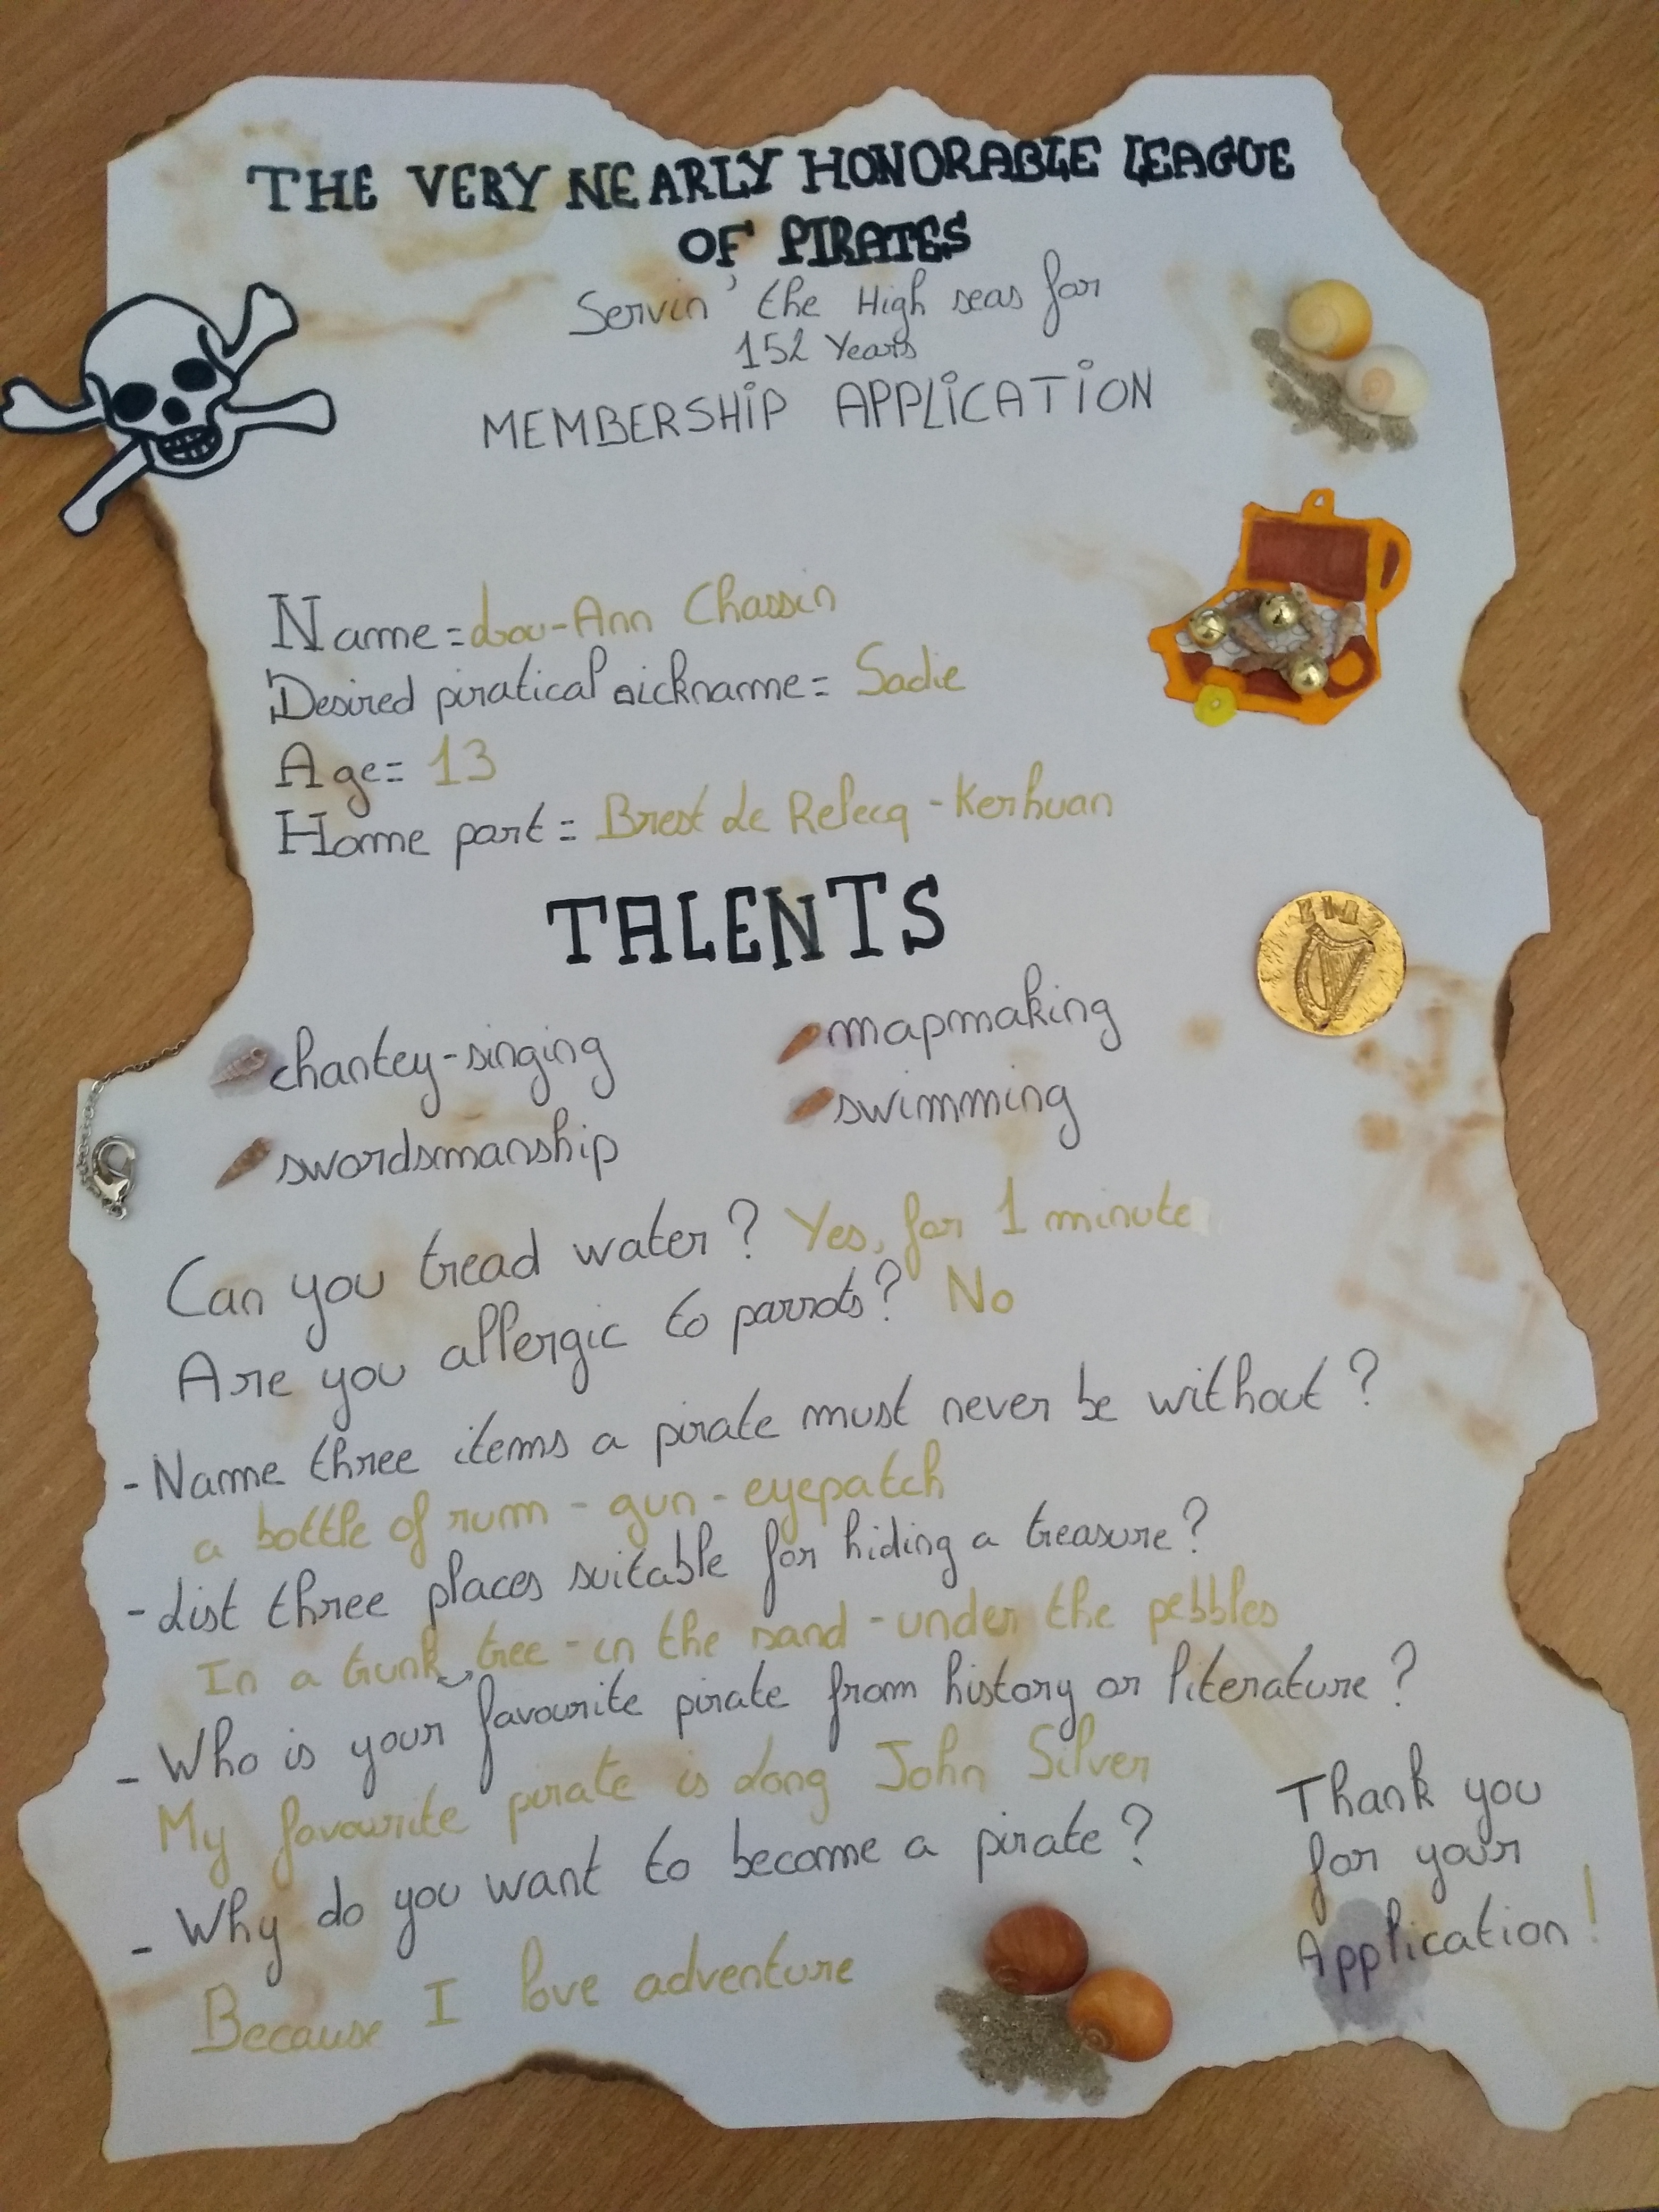 THE VERY NEARLY HONORABLE LEAGUE
OF PIRATES
Servin' the High seas for
152 Years
MEMBERSHIP APPLICATION
Name = Lou-Ann Chassin
Desired piratical nickname = Sadie
Age = 13
Home port = Brest de Relecq-Kerhuon
TALENTS
chantey-singing
mapmaking
swordsmanship
swimming
Can you tread water ? Yes, for 1 minute
Are you allergic to parrots ? No
- Name three items a pirate must never be without ?
a bottle of rum - gun - eyepatch
- List three places suitable for hiding a treasure ?
In a trunk tree - in the sand - under the pebbles
- Who is your favourite pirate from history or literature ?
My favourite pirate is Long John Silver
- Why do you want to become a pirate ?
Because I love adventure
Thank you
for your
Application !